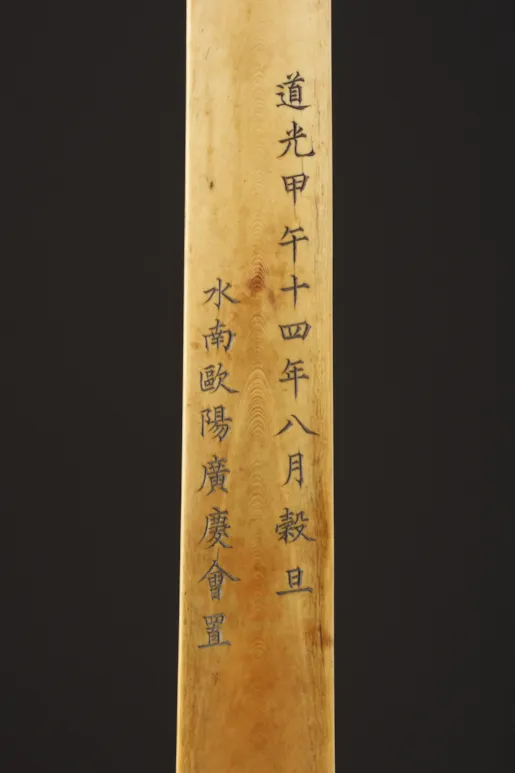 道光甲午十四年八月榖旦
水南歐陽廣慶會置